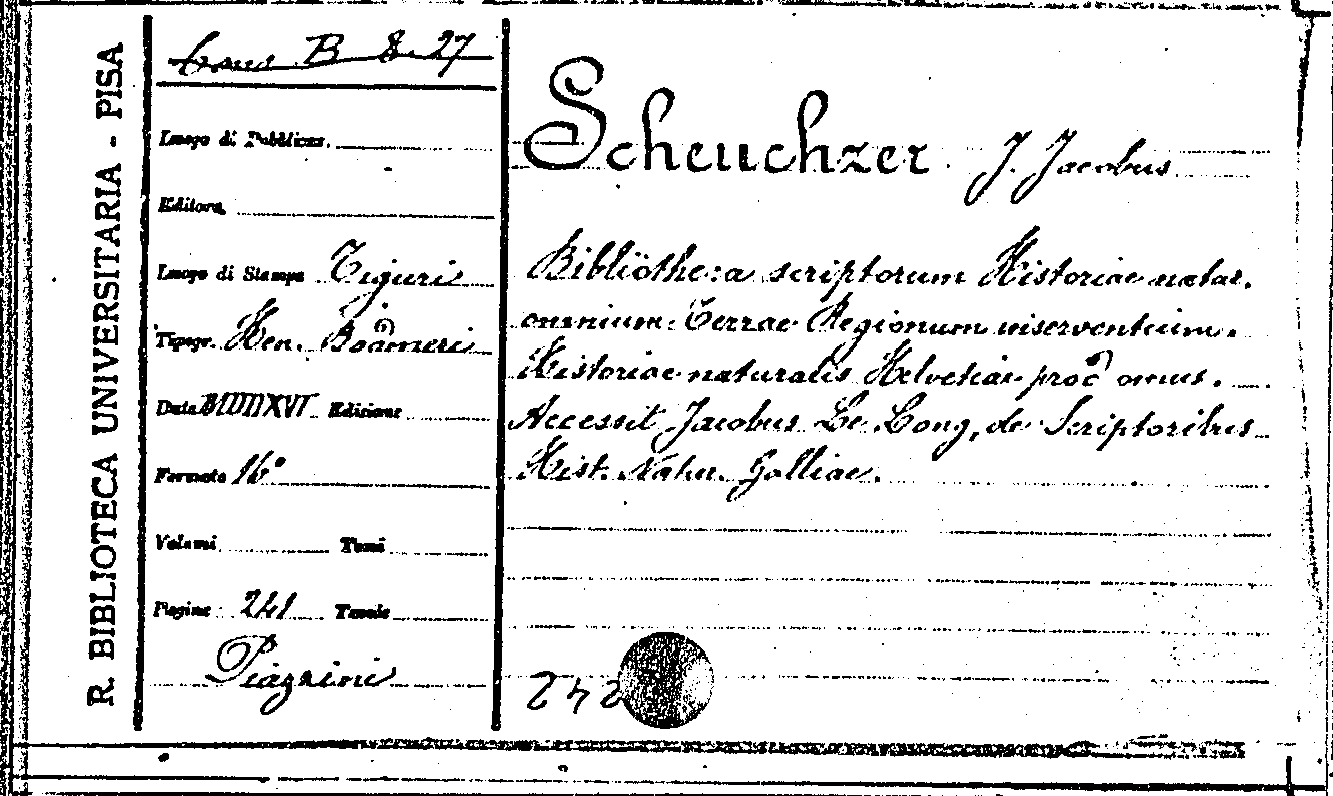 R. BIBLIOTECA UNIVERSITARIA - PISA
B 8. 27
Luogo di Pubblicaz.
Editore
Luogo di Stampa Tiguri
Tipogr. Hen. Bodmeri
Data MDCCXVI Edizione
Formato 16°
Volumi Tomi
Pagine 241 Tavole
Piazzini
Scheuchzer J. Jacobus
Bibliotheca scriptorum Historiae natur.
omnium Terrae Regionum inserventium.
Historiae naturalis Helvetiae prodromus.
Accessit Jacobus Le Long, de Scriptoribus
Hist. Natur. Galliae.
242